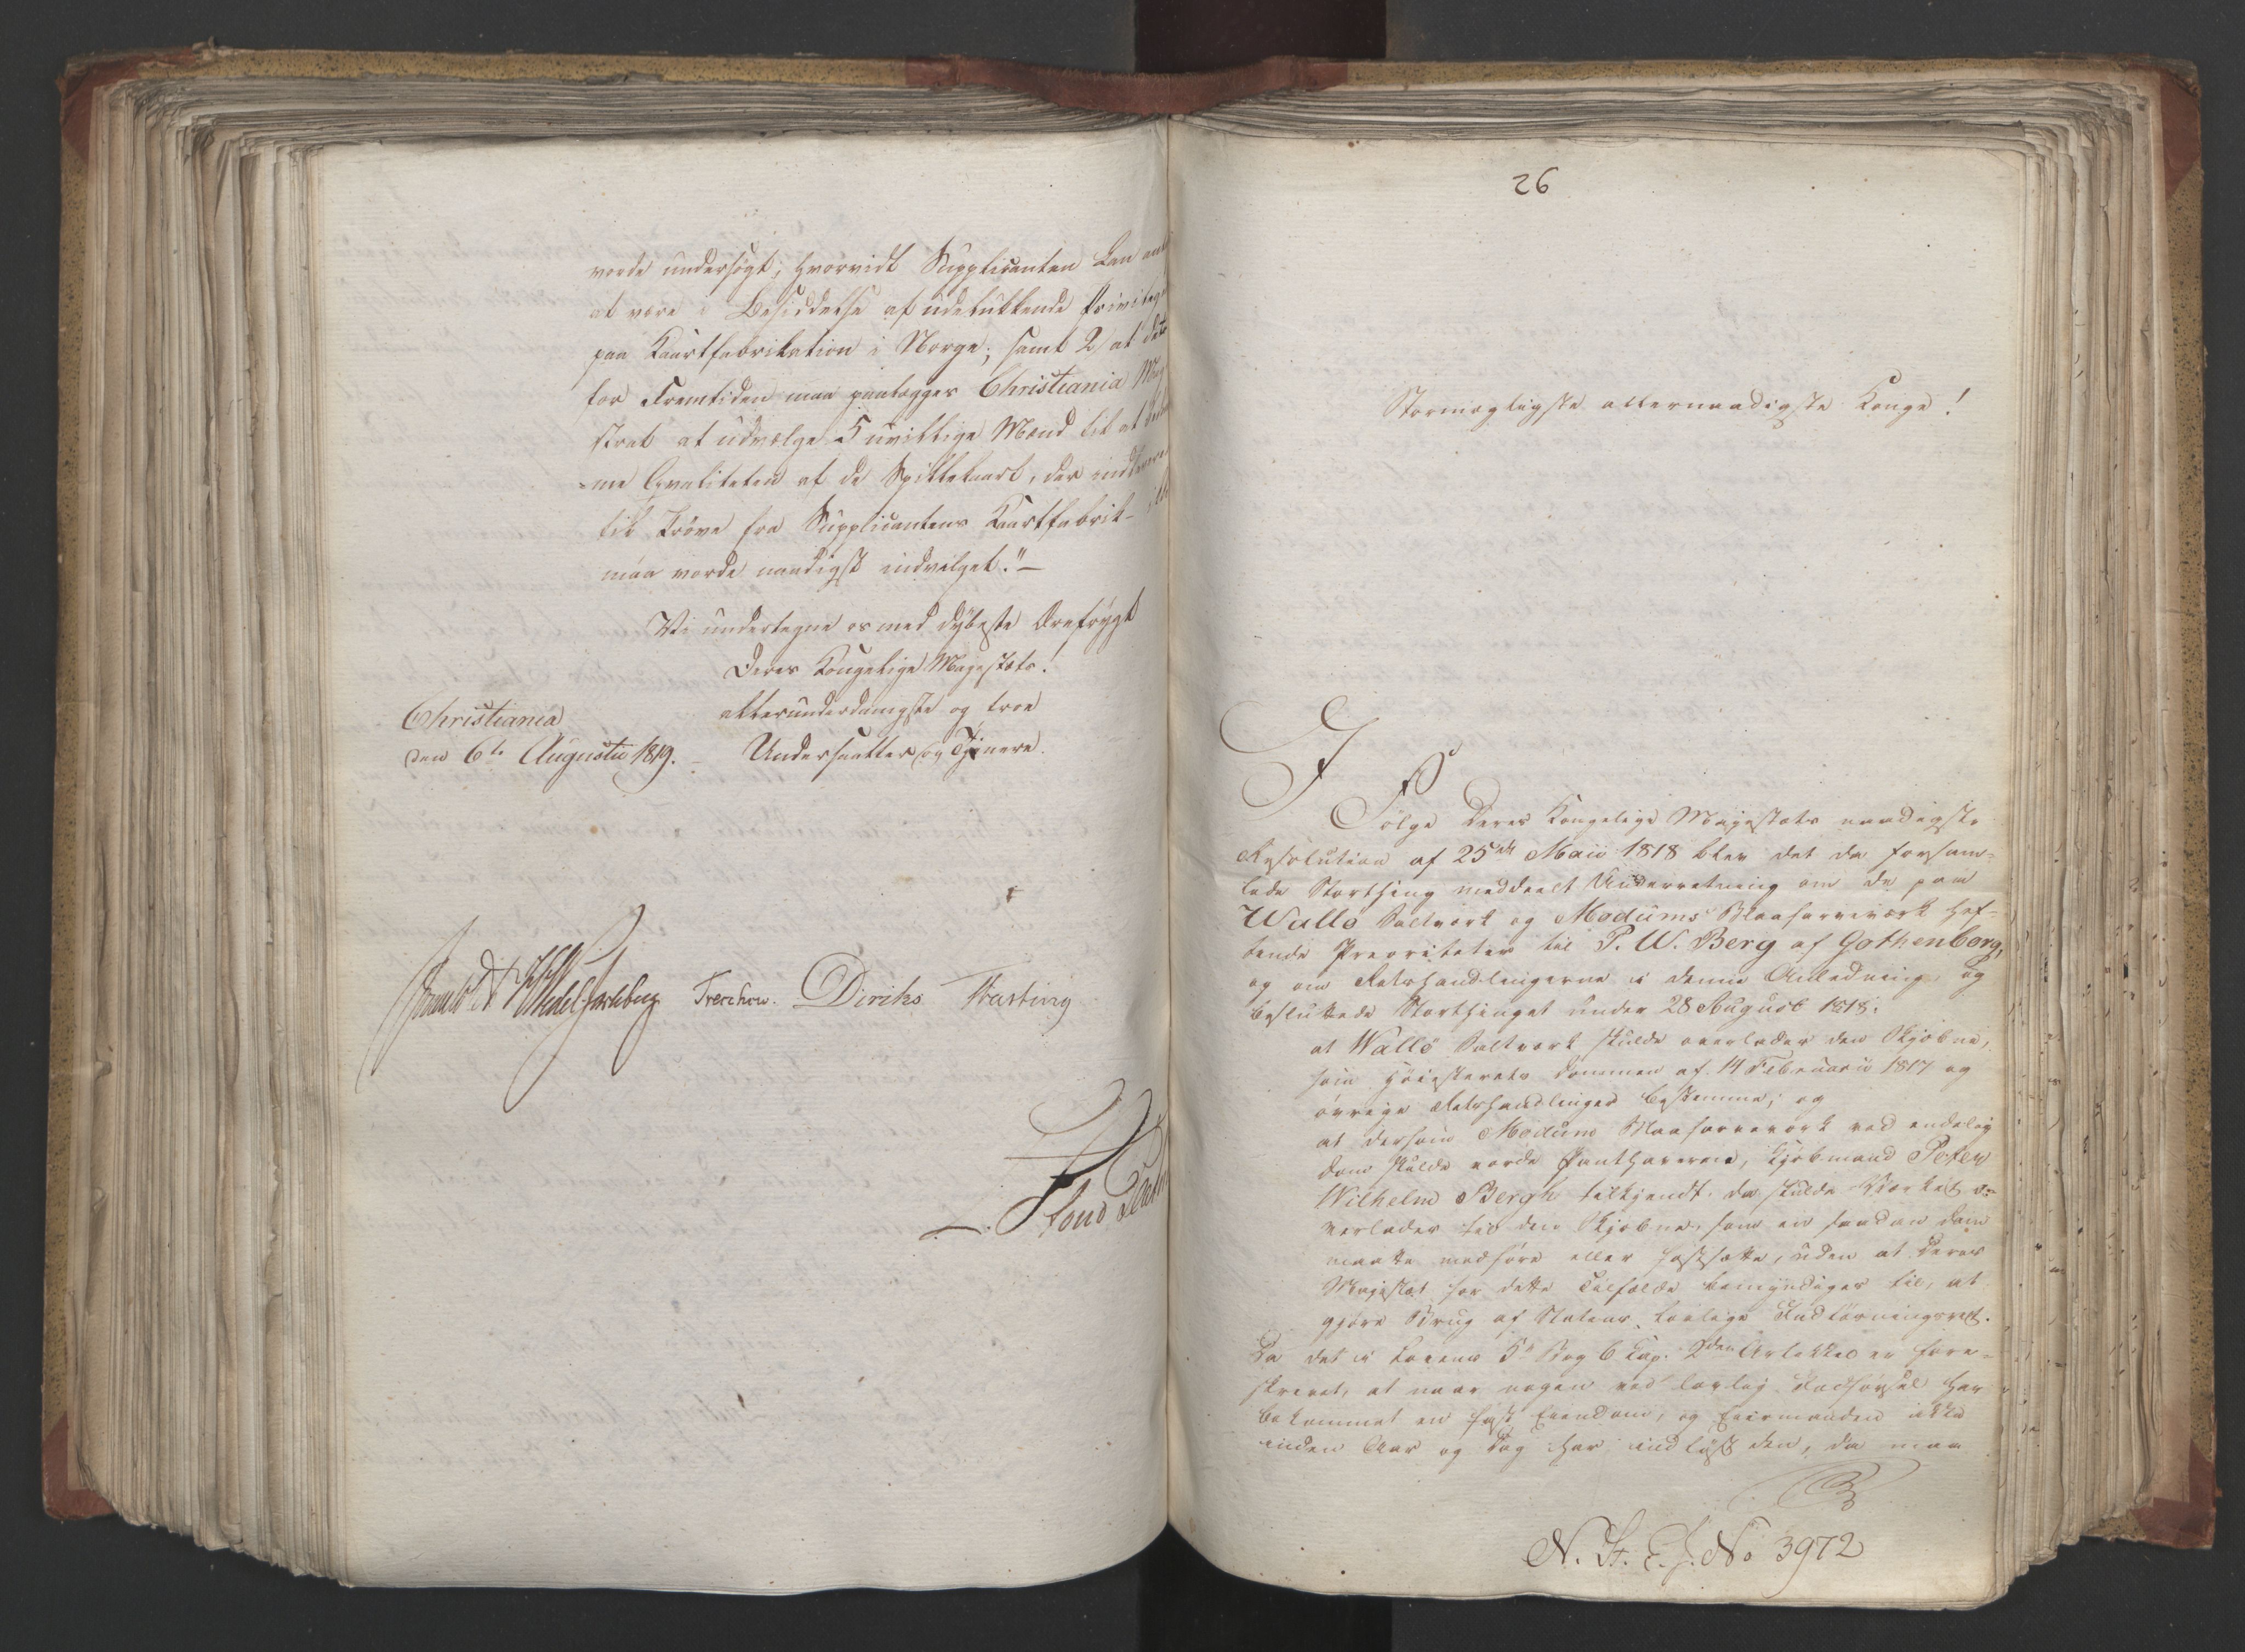 vorde undersøgt; hvorvidt Supplicanten kan
at være i Besiddelse af udelukkende Privileg
paa Kaartfabrikation i Norge; samt 2/ at det
for Fremtiden maa paalægges Christiania Mag
strat at udvælge 5 uvillige Mænd til at
-me Qvaliteten af de Spillekaart, der
til Prøve fra Supplicantens Kaartfabrik-
maa vorde naadigst indvilget."—
Vi undertegne os med dybeste Ærefrygt
Deres Kongelige Majestæts!
allerunderdanigste og troe
Christiania
den 6te Augustii 1819. – Undersaatter og Tjenere.
Wedel-Jarlsberg Treschow. Diriks Fasting
26
Stormægtigste allernaadigste Konge!
I
Følge Deres Kongelige Majestæts naadigste
Resolution af 25de Maii 1818 blev det da forsam-
lede Storthing meddeelt Underretning om de paa
Wallø Saltværk og Modums Blaafarveværk hef-
tende Prioriteter til P. W. Berg af Gothenborg,
og om Retshandlingerne i denne Anledning, og
besluttede Storthinget under 28 August 1818:
at Wallø Saltværk skulde overlades den Skjebne,
som Høiesterets Dommen af 14 Februarii 1817 og
øvrige Retshandlinger bestemme; og
at dersom Modums Blaafarveværk ved endelig
Dom skulde vorde Panthaveren, Kjøbmand Peter
Wilhelm Bergh tilkjendt, da skulde Værket o-
verlades til den Skjebne, som en saadan Dom
maatte medføre eller fastsætte, uden at Deres
Majestæt for dette Tilfælde bemyndiges til, at
gjøre Brug af Statens lovlige Indløsningsret.
Da det i Lovens 5te Bog 6 Cap. 2den Artikkel er fore-
skrevet, at naar nogen ved lovlig Indførsel har
bekommet en fast Eiendom, og Eiermanden ikke
inden Aar og Dag har indløst den, da maa
N. St. E. J. No 3972